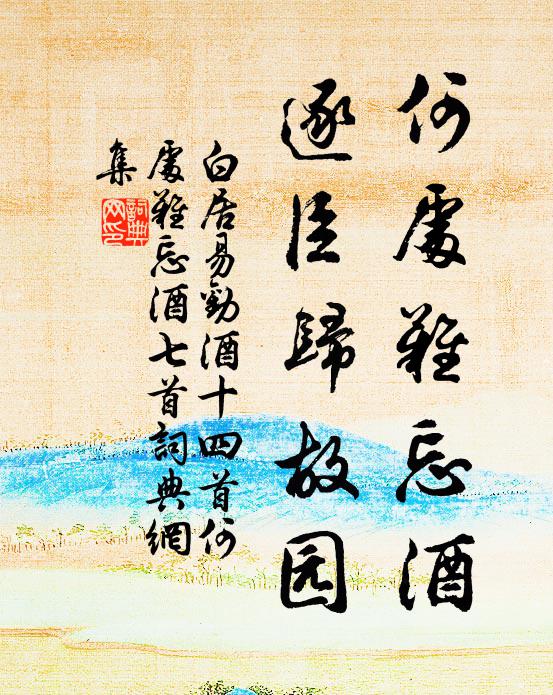 何處難忘酒
逐臣歸故园
白居易勸酒十四首何
處難忘酒七首詞典網
集
詞典
网印